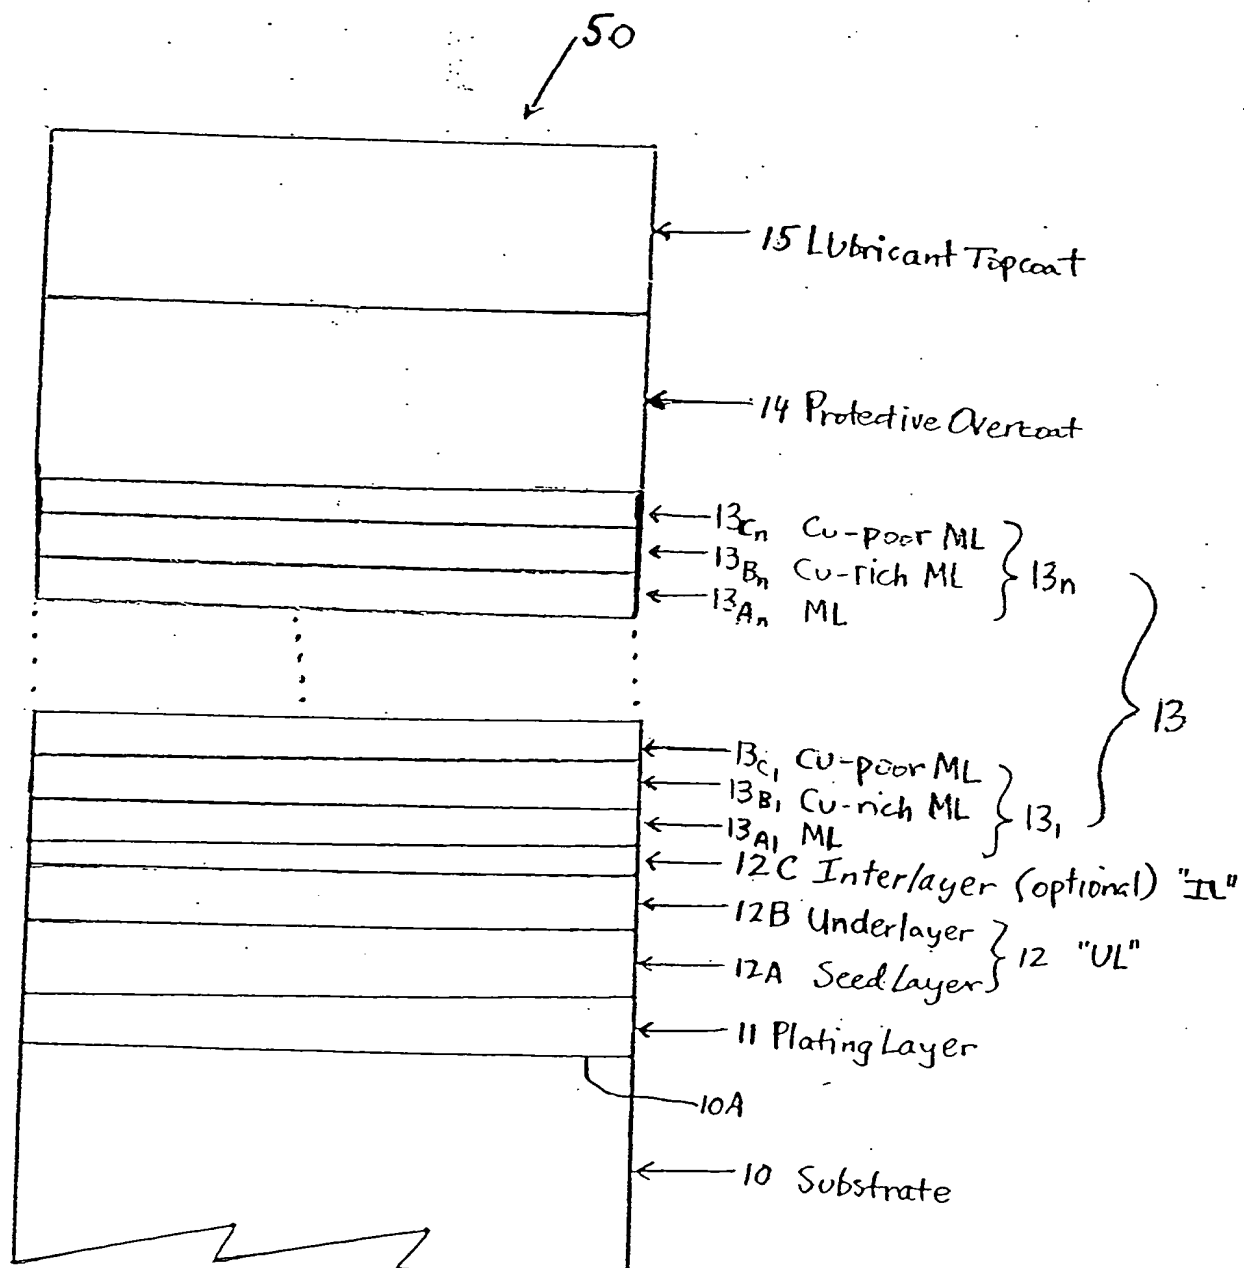 50
15 Lubricant Topcoat
14 Protective Overcoat
13Cn Cu-poor ML
13Bn Cu-rich ML
13An ML
13n
13C1 Cu-poor ML
13B1 Cu-rich ML
13A1 ML
131
13
12C Interlayer (optional) "IL"
12B Underlayer
12A Seed Layer
12 "UL"
11 Plating Layer
10A
10 Substrate